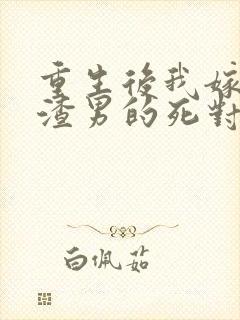 重生後我嫁
渣男的死對
白佩茹